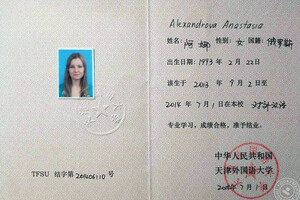 Alexandrova Anastasia
姓名: 阿娜 性别: 女 国籍: 俄罗斯
出生日期: 1993 年 2 月 22 日
该生于 2013 年 9 月 2 日至
2014 年 7 月 1 日在本校 对外汉语
专业学习，成绩合格，准予结业。
中华人民共和国
天津外国语大学
年 7 月 1 日
TFSU 结字第 201406110 号